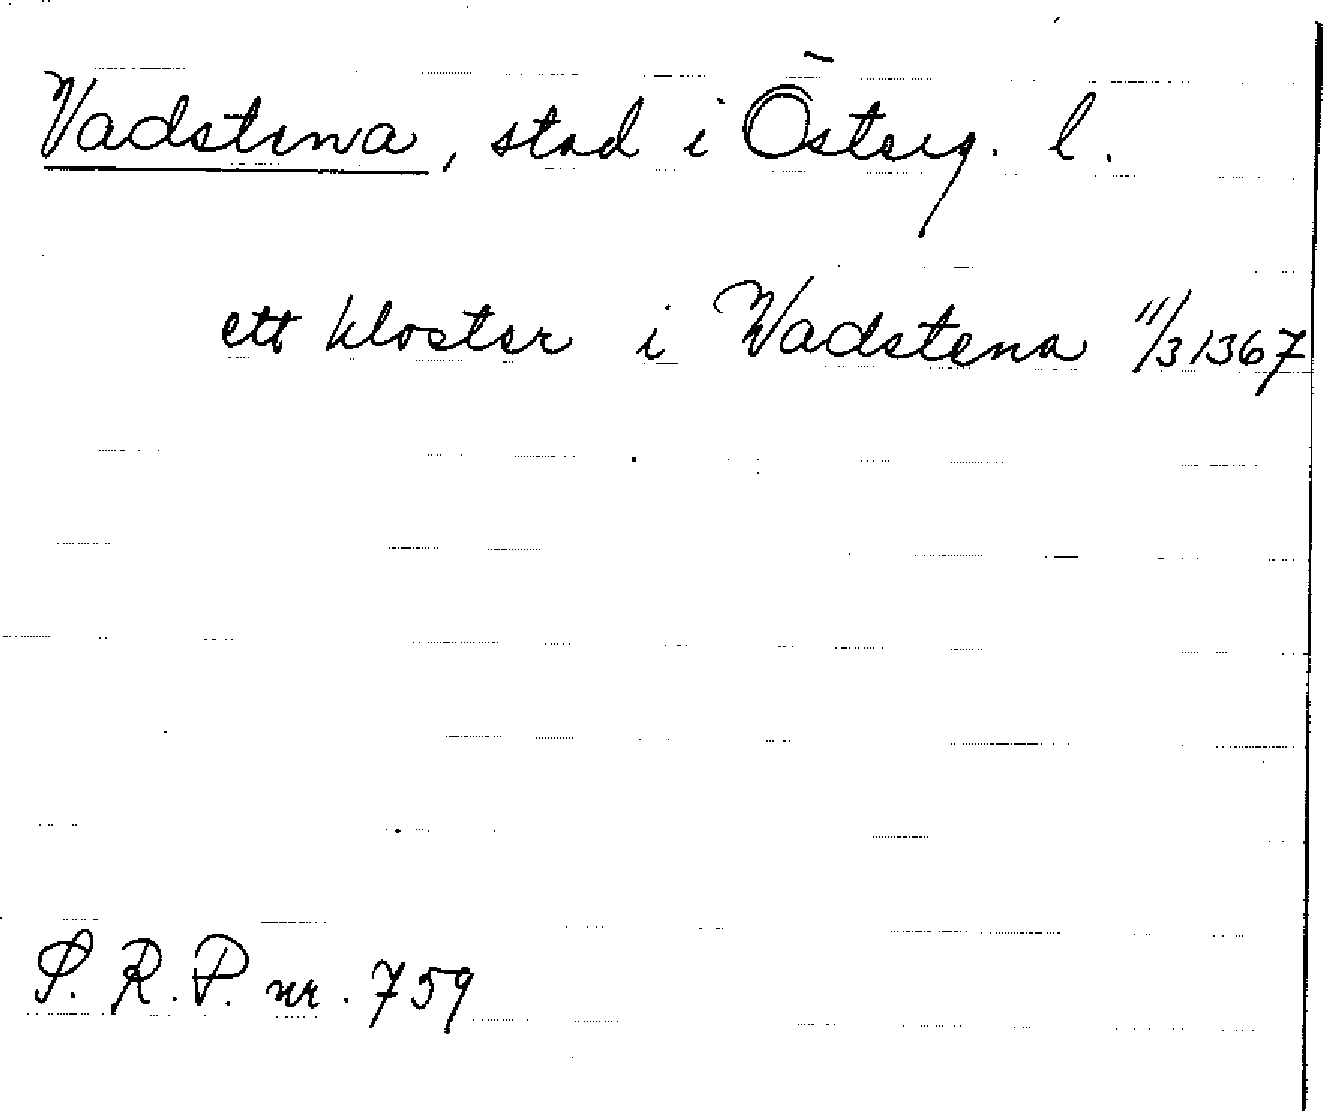 Vadstena, stad i Österg. l.
ett kloster i Wadstena 11/3 1367
S. R. P. nr. 759